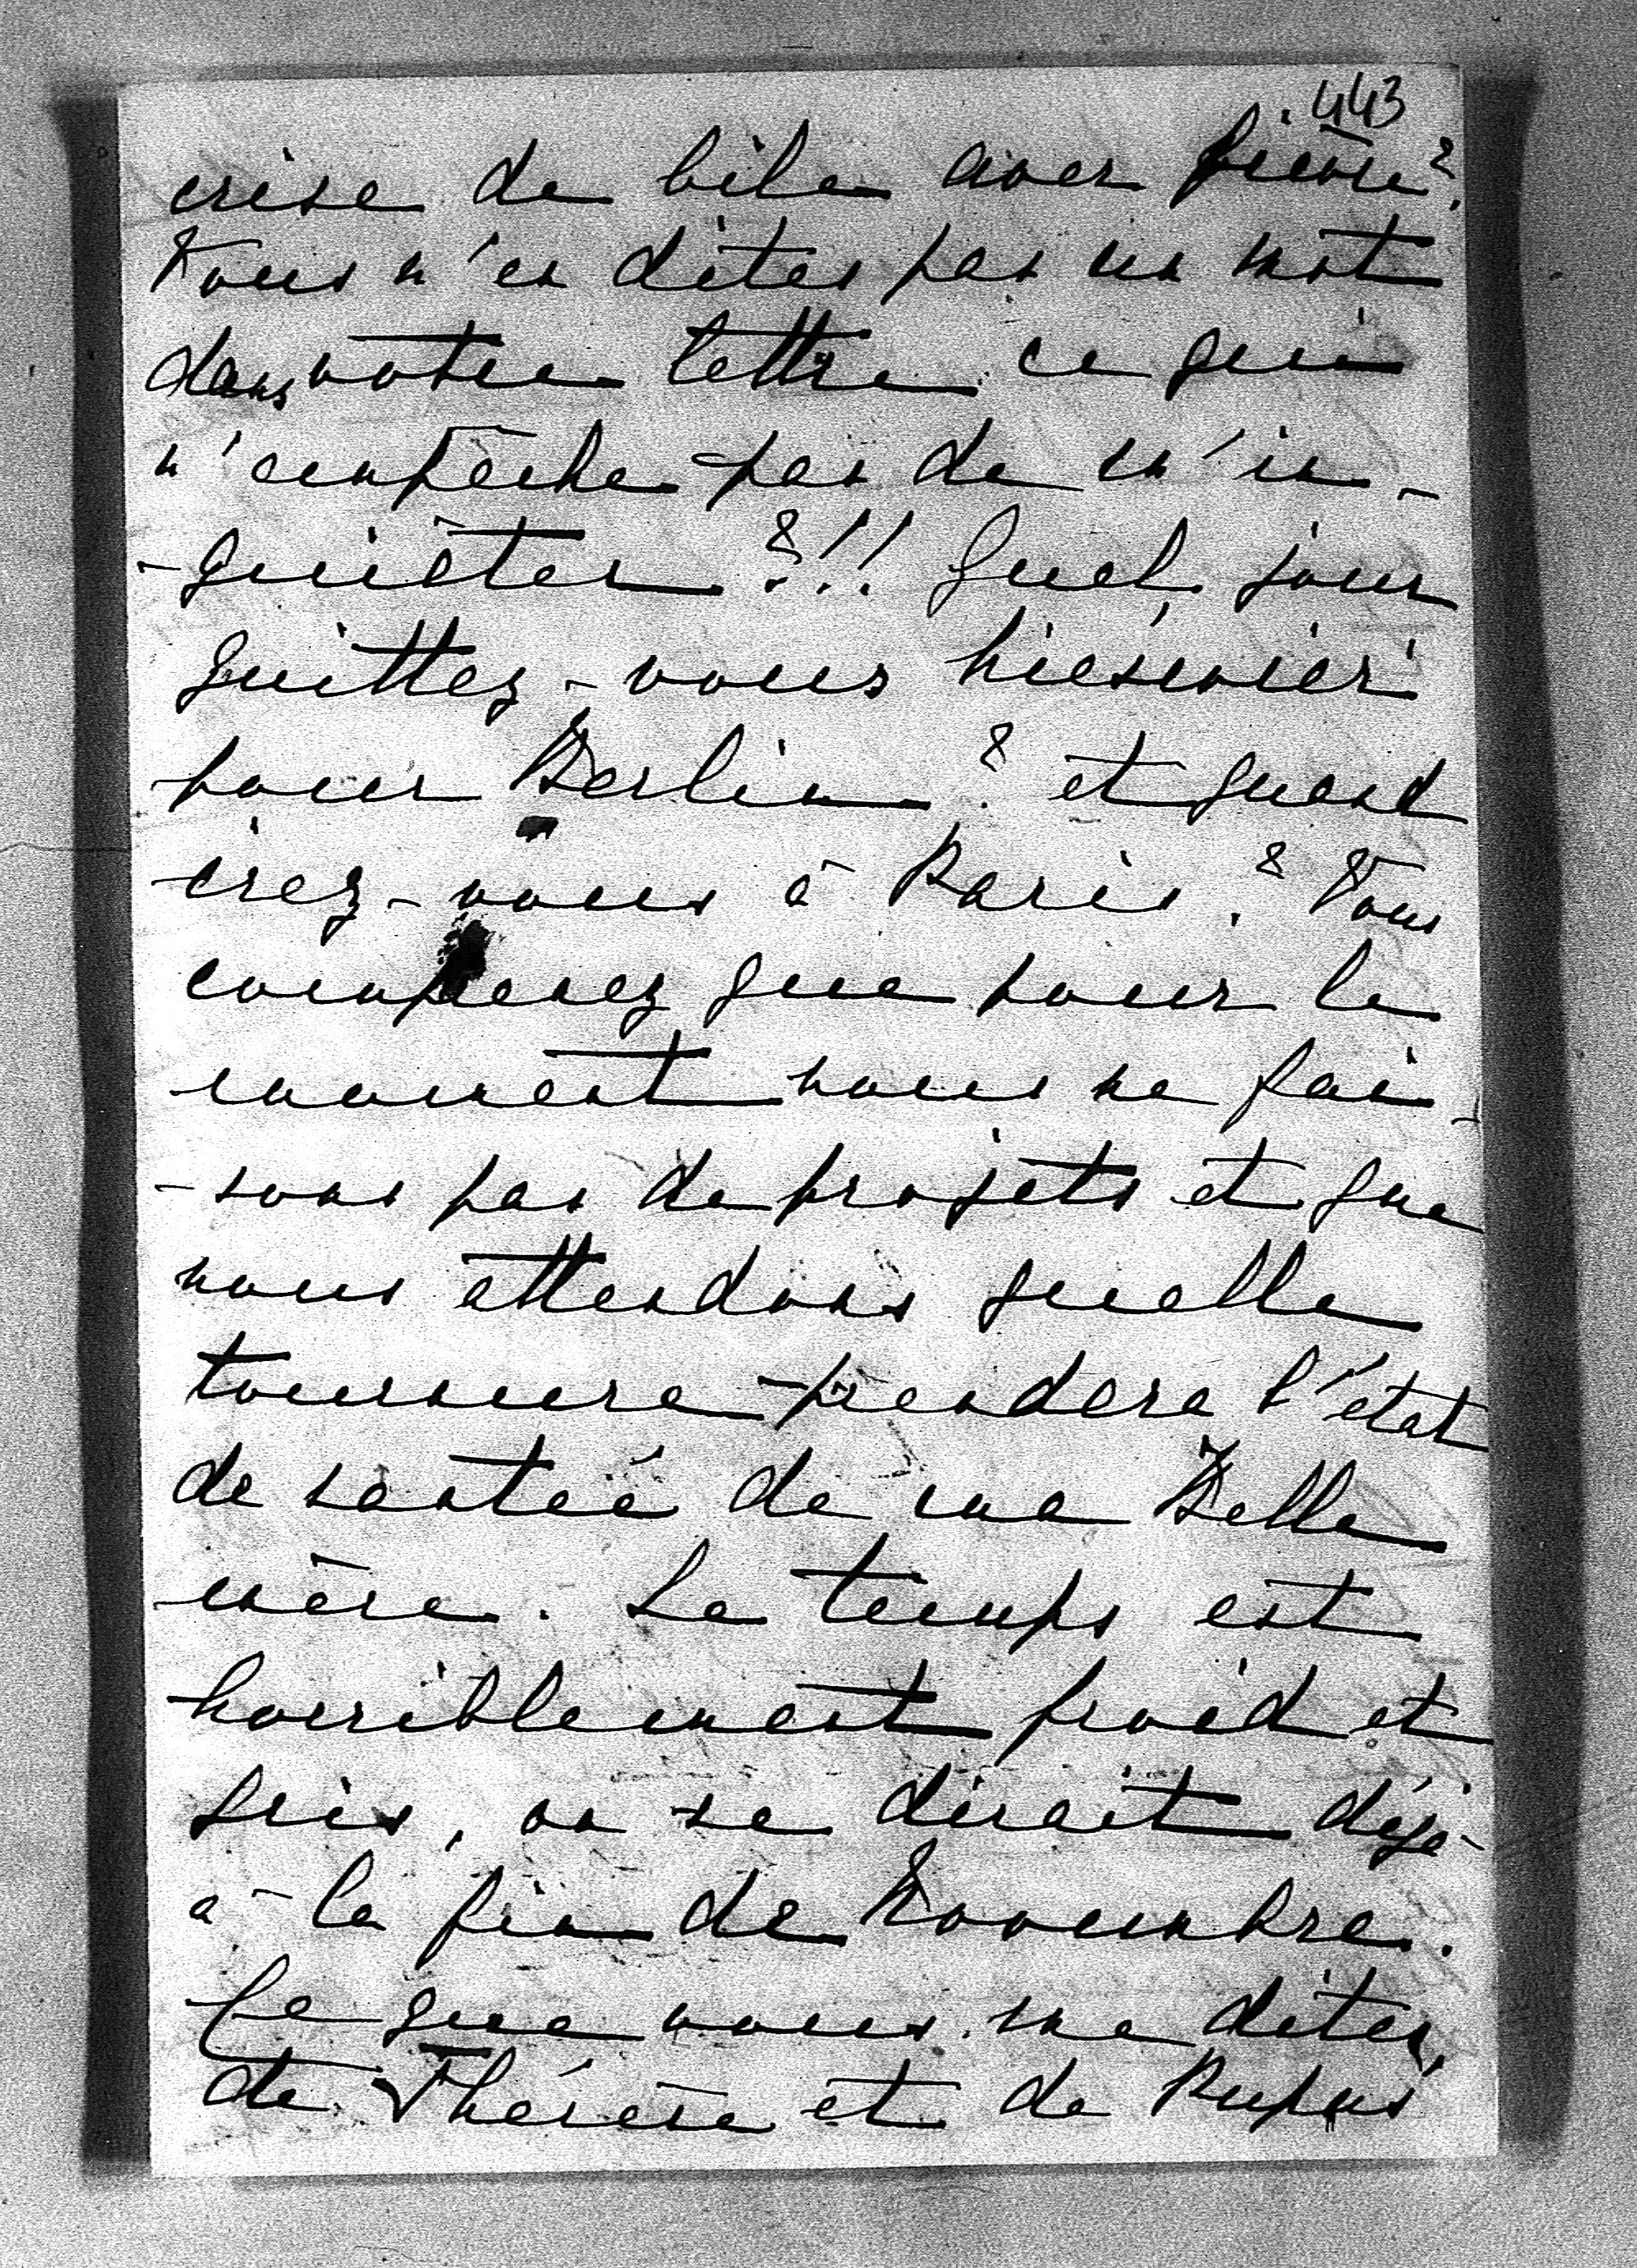 443
crise de bile avec fièvre?
Vous n'en dites pas un mot
dans votre lettre ce qui
n'empêche pas de m'in-
-quiéter?!! Quel jour
quittez-vous
pour Berlin? et quand
irez-vous à Paris? Vous
comprenez que pour le
moment nous ne fai-
-sons pas de projets et que
nous attendons quelle
tournure prendera l'état
de santeé de ma Belle
mère. Le temps est
horriblement froid et
gris, on se dirait déjà
à la fin de Novembre.
Ce que vous me dites,
de Thérèse et de